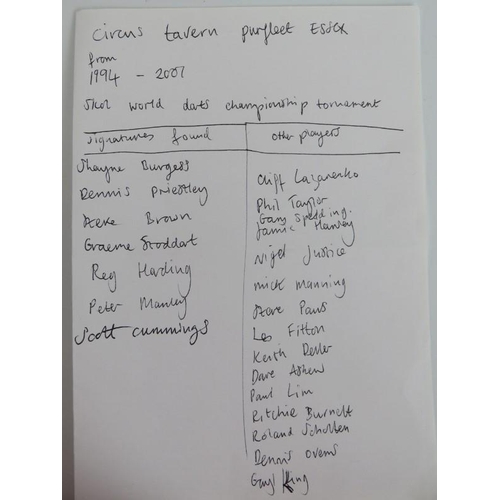 Circus tavern purfleet ESSEX
from
1994 - 2001
Skol world dats championship tornament
Signatures found
other players
Shayne Burgess
Dennis Priestley
Steve Brown
Graeme Stoddart
Reg Harding
Peter Manley
Scott cummings
Cliff Lazarenko
Phil Taylor
Gary Spedding.
Jamie Harvey
Nigel Justice
mick manning
Steve Paus
Les Fitton
Keith Deller
Dave Askew
Paul Lim
Ritchie Burnett
Roland Scholten
Dennis Ovens
King